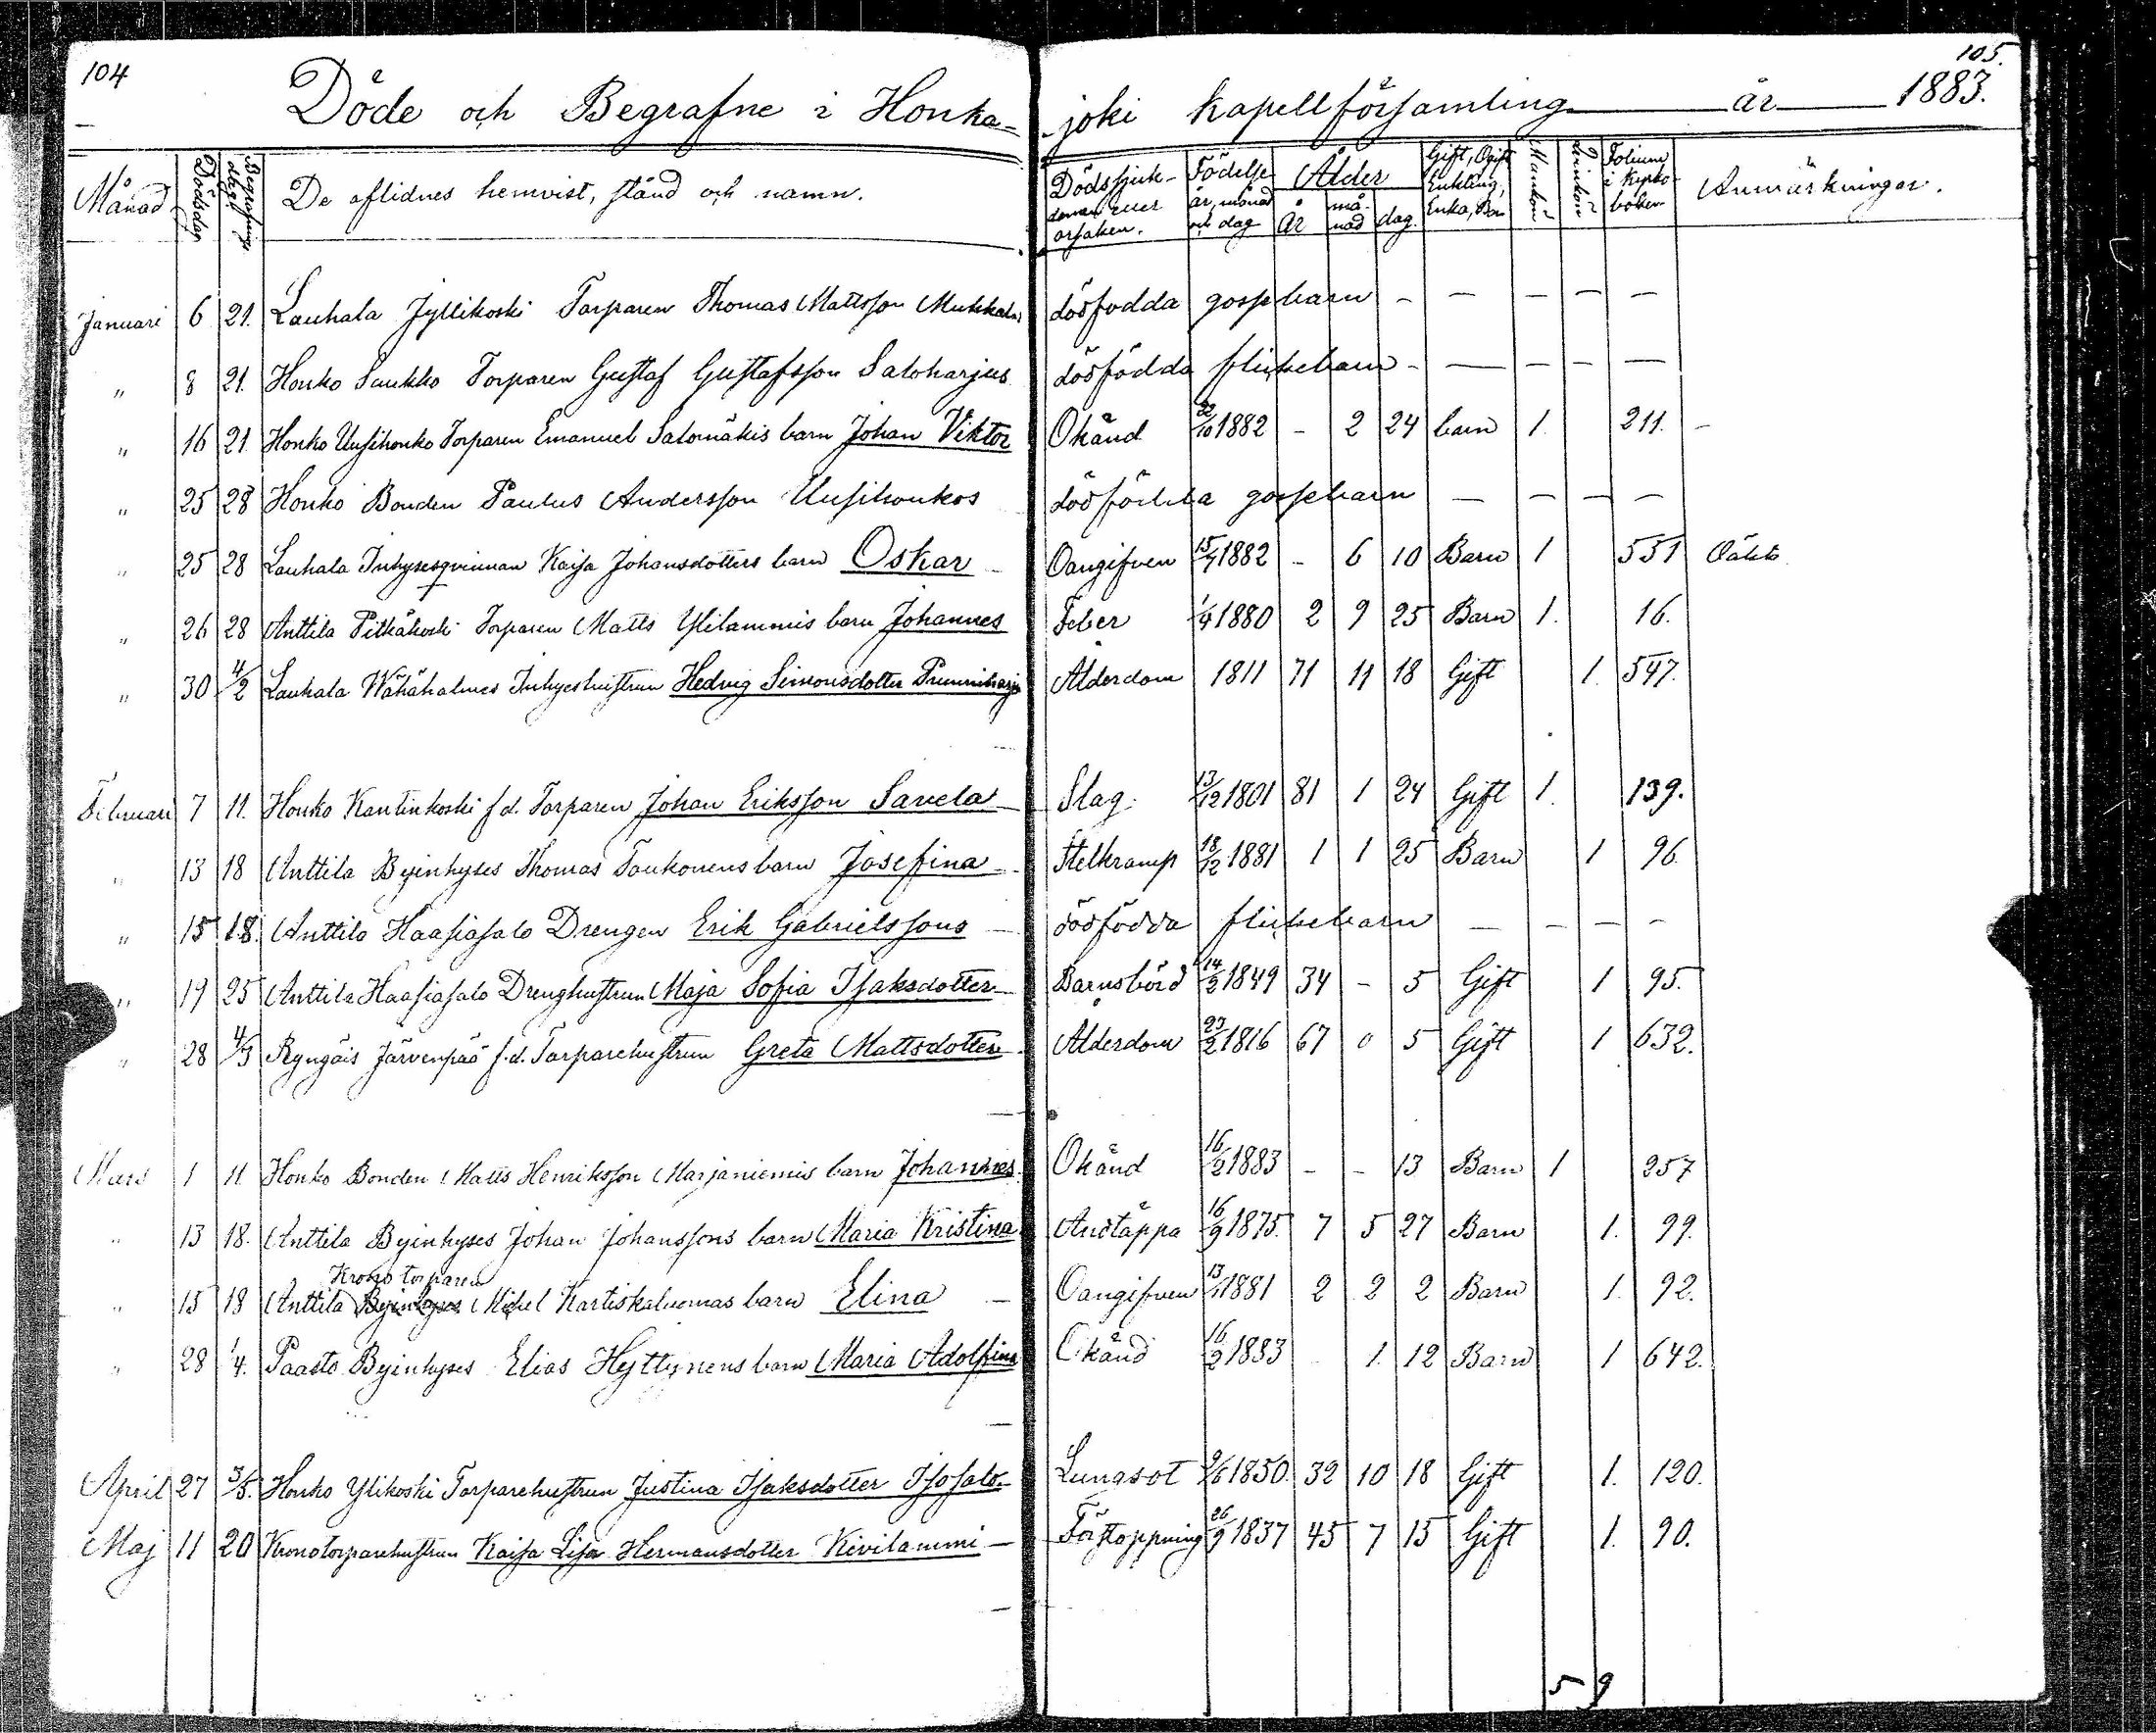 104
105.
Döde och Begrafne i Honkajoki kapellförsamling år 1883.
Månad Dödsdag Begrafnings dag. De aflidnes hemvist, stånd och namn. Dödssjukdomen eller orsaken. Födelse år, månad och dag Ålder År månad dag. Gift, Ogift Enkling, Enka, Barn Mankön Qvinkön Folium i Kyrkoboken Anmärkningar.
Januari 6 21. Lauhala Jyllikoski Torparen Thomas Mattsson Mukkalas dödfödda gossebarn - - - - -
" 8 21. Honko Saukko Torparen Gustaf Gustafsson Saloharjus dödfödda flickebarn - - - - -
" 16 21 Honko Uusihonko Torparen Emanuel Salomäkis barn Johan Viktor Okänd 22/10 1882 - 2 24 barn 1. 211. -
" 25 28 Honko Bonden Paulus Andersson Uusihonkos dödfödda gossebarn - - - -
" 25 28 Lauhala Inhysesqvinnan Kaisa Johansdotters barn Oskar - Oangifven 15/7 1882 - 6 10 Barn 1 551 Oäkta
" 26 28 Anttila Pitkäkoski Torparen Matts Ylilammis barn Johannes Feber 1/4 1880 2 9 25 Barn 1. 16.
" 30 4/2 Lauhala Wähähalmes Inhyseshustrun Hedvig Simonsdotter Ålderdom 1811 71 11 18 Gift 1. 547.
Februari 7 11. Honko Kantinkoski f.d. Torparen Johan Eriksson Savela - Slag. 13/12 1801 81 1 24 Gift 1. 139.
" 13 18 Anttila Byinhyses Thomas Toukonens barn Josefina - Stelkramp 18/12 1881 1 1 25 Barn 1 96.
" 15 18. Anttila Haasiasalo Drengen Erik Gabrielssons - dödfödda flickebarn - - - -
" 19 25 Anttila Haasiasalo Drenghustrun Maja Sofia Isaksdotter - Barnsbörd 14/2 1849 34 - 5 Gift 1 95.
" 28 4/3 Ryngäis Järvenpää f.d. Torparehustrun Greta Mattsdotter Ålderdom 23/2 1816 67 0 5 Gift 1 632.
Mars 1 11 Honko Bonden Matts Henriksson Marjaniemis barn Johannes. Okänd 16/2 1883 - - 13 Barn 1 257
" 13 18. Anttila Byinhyses Johan Johanssons barn Maria Kristina Andtäppa 16/9 1875. 7 5 27 Barn 1. 99.
Krono torparen
" 15 18 Anttila Byinhyses Mikel Kartiskaluomas barn Elina - Oangifven 13/1 1881 2 2 2 Barn 1. 92.
" 28 1/4. Paasto Byinhyses Elias Hyttynens barn Maria Adolfina Okänd 16/2 1883 1. 12 Barn 1 642.
April 27 3/5. Honko Ylikoski Torparehustrun Justina Isaksdotter Isosalo - Lungsot 9/6 1850. 32 10 18 Gift 1. 120.
Maj 11 20 Kronotorparehustrun Kaisa Lisa Hermansdotter Kivilammi - Förstoppning 26/9 1837 45 7 15 Gift 1. 90.
5 9